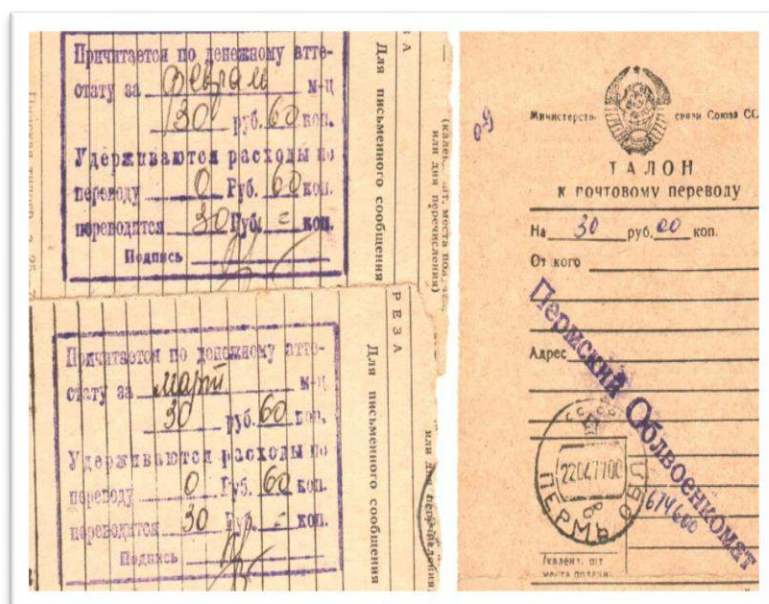 Причитается по денежному атте-
стату за февраль м-ц
30 руб. 60 коп.
Удерживаются расходы по
переводу 0 Руб. 60 коп.
переводится 30 Руб. = коп.
Подпись
Для письменного сообщения
или дня перечисления)
Причитается по денежному атте-
стату за март м-ц
30 руб. 60 коп.
Удерживаются расходы по
переводу 0 Руб. 60 коп.
переводится 30 Руб. - коп.
Подпись
РЕЗА
Для письменного сообщения
или дня перечисления)
Министерство связи Союза СС
ТАЛОН
к почтовому переводу
На 30 руб. 00 коп.
От кого
Адрес
Пермский Облвоенкомат
ПЕРМЬ ОБЛ
674600
(календ. шт.
места подачи